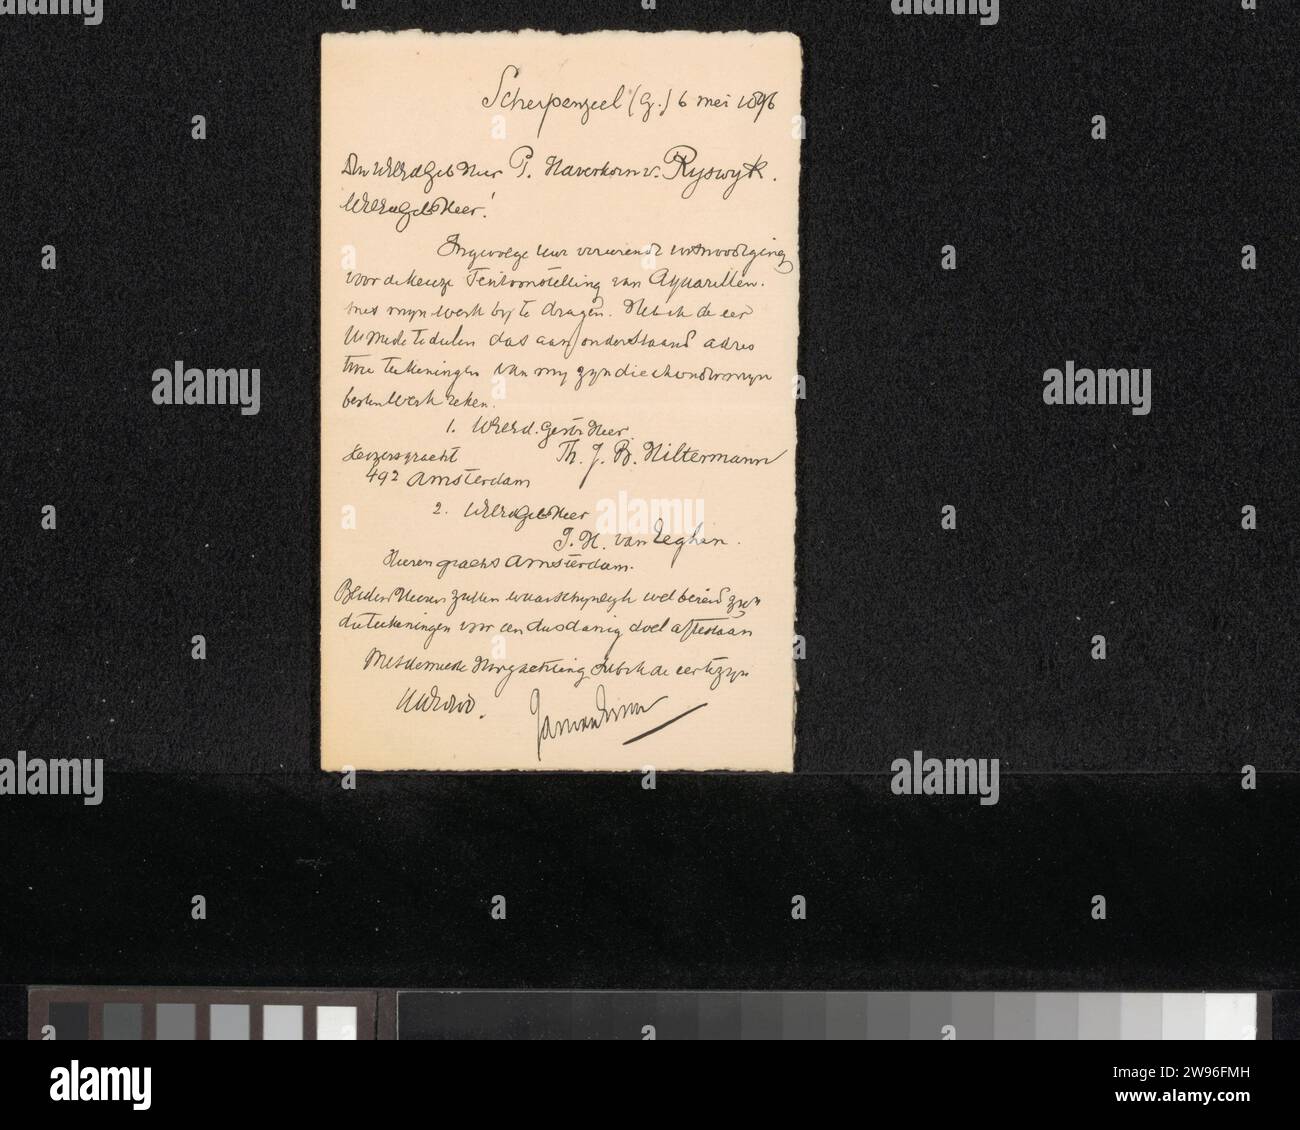 Scherpenzeel (G.) 6 mei 1896
Den WelEdGeb Heer P. Haverkorn v. Rijswijk.
WelEdGeb Heer!
Ingevolge Uwe vereerende uitnoodiging
voor de keuze Tentoonstelling van Aquarellen.
met mijn werk bij te dragen. Heb ik de eer
U mede te deelen dat aan onderstaand adres
twee teekeningen van mij zijn die ik onder mijn
besten werk reken.
1. WelEd. Gestr Heer
Th. J. B. Hiltermann
Keizersgracht
492 Amsterdam
2. WelEdGeb Heer
P. H. van Eeghen.
Heerengracht Amsterdam.
Beiden Heeren zullen waarschijnlijk wel bereid zijn
die teekeningen voor een dusdanig doel aftestaan
Met de meeste Hoogachting heb ik de eer te zijn
alamy
Image ID: 2W96FMH
www.alamy.com